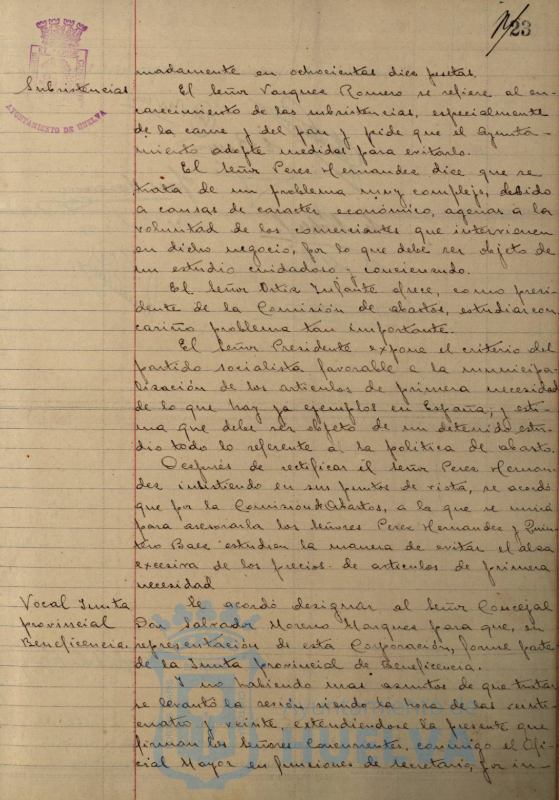 23
madamente en ochocientas diez pesetas.
Subsistencias
AYUNTAMIENTO DE HUELVA
El Señor Vasquez Romero se refiere al en-
carecimiento de las subsistencias, especialmente
de la carne y del pan y pide que el Ayunta-
miento adopte medidas para evitarlo.
El Señor Perez Hernandez dice que se
trata de un problema muy complejo, debido
a causas de caracter económico, agenas a la
voluntad de los comerciantes que intervienen
en dicho negocio, por lo que debe ser objeto de
un estudio cuidadoso y concienzudo.
El Señor Ortiz Infante ofrece, como presi-
dente de la Comisión de abastos, estudiar con
cariño problema tan importante.
El Señor Presidente expone el criterio del
partido socialista favorable a la municipa-
lización de los articulos de primera necesidad
de lo que hay ya ejemplos en España, y esti-
ma que debe ser objeto de un detenido estu-
dio todo lo referente a la politica de abasto.
Después de rectificar el Señor Perez Hernan-
dez insistiendo en sus puntos de vista, se acordó
que por la Comisión de Abastos, a la que se unirá
para asesorarla los Señores Perez Hernandez y Quin-
tero Baez estudien la manera de evitar el alza
excesiva de los precios de articulos de primera
necesidad
Vocal Junta
provincial
Beneficencia.
Se acordó designar al Señor Concejal
Don Salvador Moreno Marquez para que, en
representación de esta Corporación, forme parte
de la Junta provincial de Beneficencia.
Y no habiendo mas asuntos de que tratar
se levantó la sesión siendo la hora de las veinte
cuatro y veinte, extendiendose la presente que
firman los Señores Concurrentes, conmigo el Ofi-
cial Mayor en funciones de Secretario, por in-
HUELVA